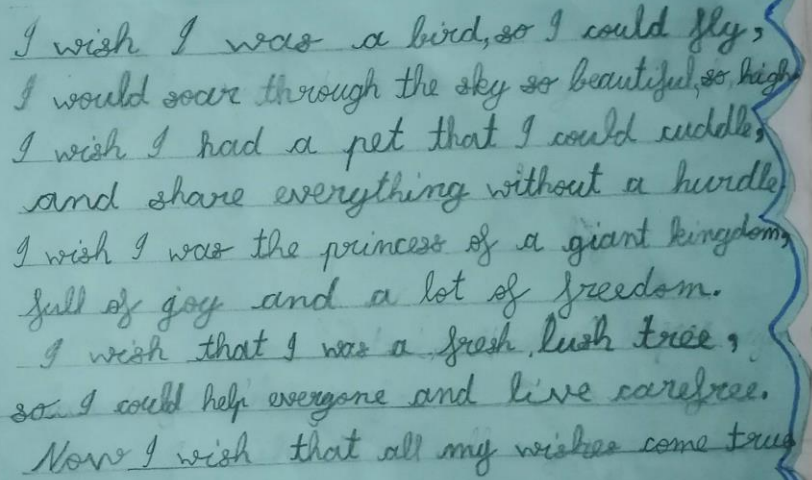 I wish I was a bird, so I could fly,
I would soar through the sky so beautiful, so high
I wish I had a pet that I could cuddle,
and share everything without a hurdle
I wish I was the princess of a giant kingdom,
full of joy and a lot of freedom.
I wish that I was a fresh, lush tree,
so I could help everyone and live carefree.
Now I wish that all my wishes come true